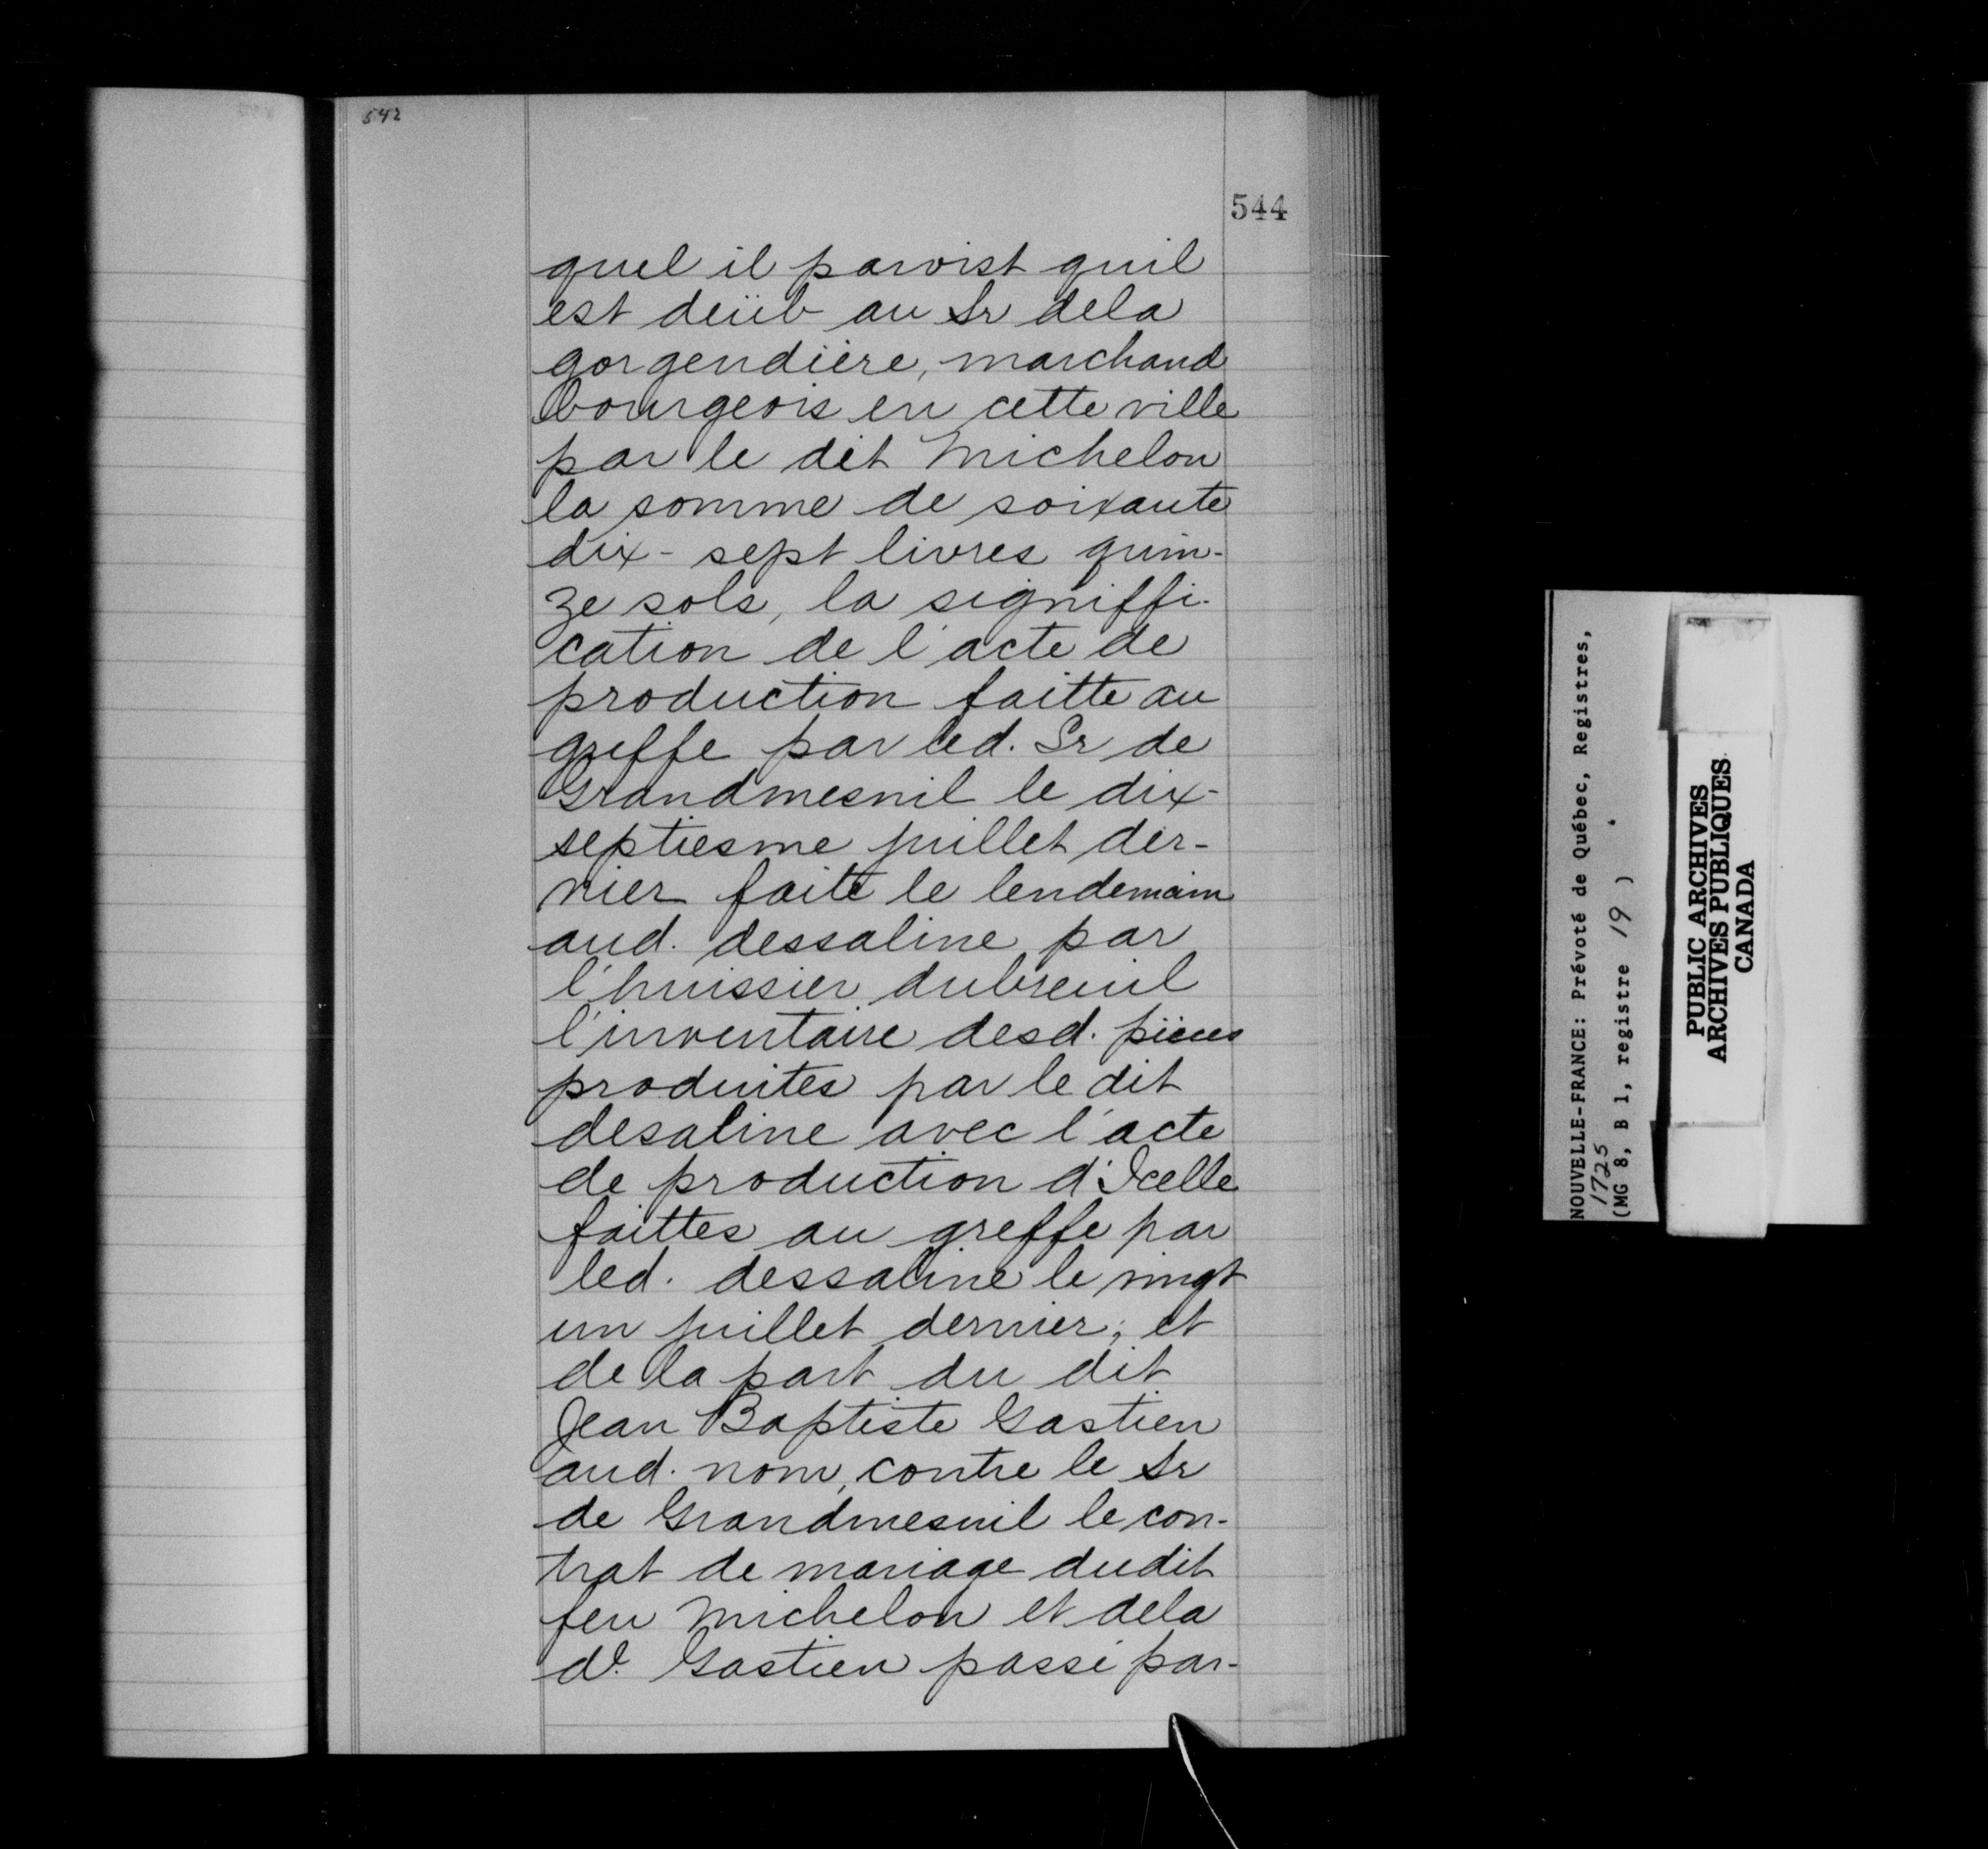 542
544
quel il paroist quil
est deüb au Sr dela
gorgendière, marchand
bourgeois en cette ville
par le dit Michelon
la somme de soixante
dix-sept livres quin-
ze sols, la signiffi-
cation de l'acte de
production faitte au
greffe par led. Sr de
Grandmesnil le dix-
septiesme juillet der-
nier faite le lendemain
aud. dessaline par
l'huissier dubreuil
l'inventaire desd. pièces
produites par le dit
desaline avec l'acte
de production d'Icelle
faittes au greffe par
led. dessaline le vingt
un juillet dernier; et
de la part du dit
Jean Baptiste Gastien
aud. nom, contre le Sr
de Grandmesnil le con-
trat de mariage dudit
feu Michelon et dela
de. Gastien passé par-
NOUVELLE-FRANCE: Prévoté de Québec, Registres,
1725
(MG 8, B 1, registre 19 ) .
PUBLIC ARCHIVES
ARCHIVES PUBLIQUES
CANADA